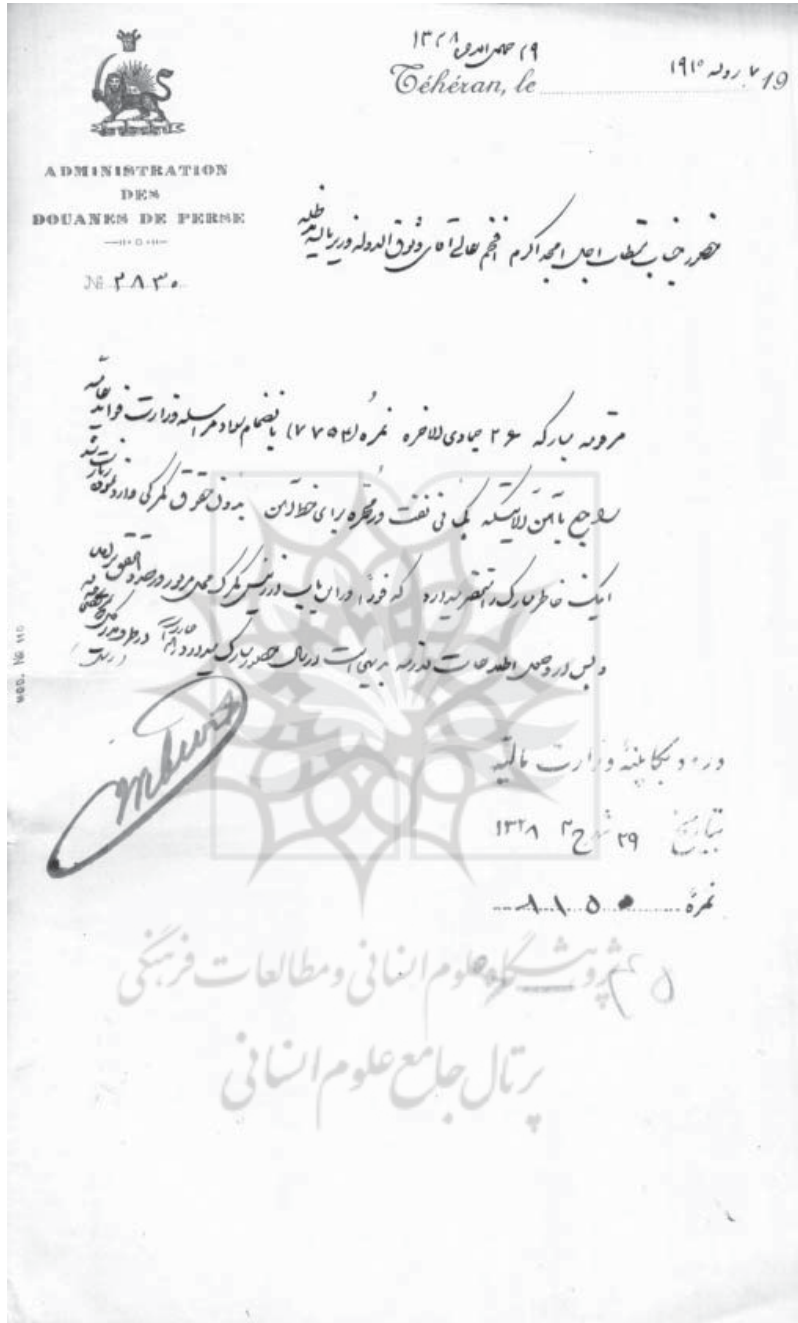 ۲۹ جمادی‌الاخر ۱۳۲۸
۷ ژوئیه ۱۹۱۰
Téhéran, le 19
ADMINISTRATION
DES
DOUANES DE PERSE
№ ۲۸۳۰
حضور جناب مستطاب اجل امجد اکرم افخم عالی آقای وثوق الدوله وزیر مالیه مدظله
مرقومه مبارکه ۲۶ جمادی الاخره نمره (۷۷۵۴) بانضمام سواد مراسله وزارت فواید عامه
راجع بآهن آلاتیکه کمپانی نفت در محمره برای خط آهن بدون حقوق گمرکی وارد نموده زیارت شد
اینک خاطر مبارک را مستحضر میدارد که فوراً در این باب از رئیس گمرک محل
و پس از وصول اطلاعات لازمه بدیهی است در حضور مبارک
ورود بکابینه وزارت مالیه
بتاریخ ۲۹ شهر ج ۲ ۱۳۲۸
نمره ۸۱۵۰
پژوهشگاه علوم انسانی و مطالعات فرهنگی
پرتال جامع علوم انسانی